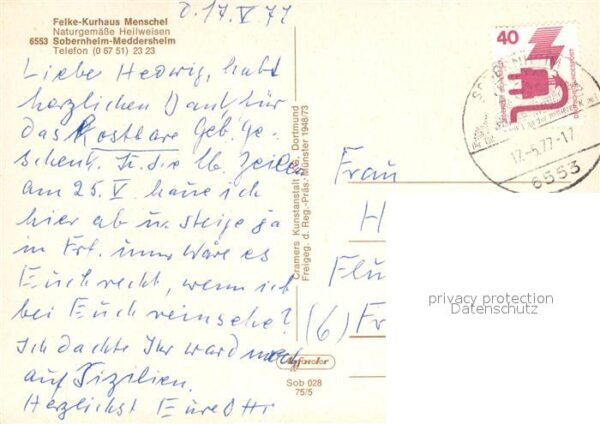 d. 17. V 77
Felke-Kurhaus Menschel
Naturgemäße Heilweisen
6553 Sobernheim-Meddersheim
Telefon (0 67 51) 23 23
Liebe Hedwig, habt
herzlichen Dank für
das Kostbare Geb. ge-
schenk. u. die lb. Zeilen
am 25. V haue ich
hier ab u. steige ja
in Frf. um. Wäre es
Euch recht, wenn ich
bei Euch reinsehe?
Ich dachte Ihr ward noch
auf Sizilien.
Herzlichst Eure
Cramers Kunstanstalt KG., Dortmund
Freigeg. d. Reg.-Präs. Münster 1948/73
Sob 028
75/5
40
17.-5.77-17
6553
Frau
H
Flu
(6) Fr
privacy protection
Datenschutz